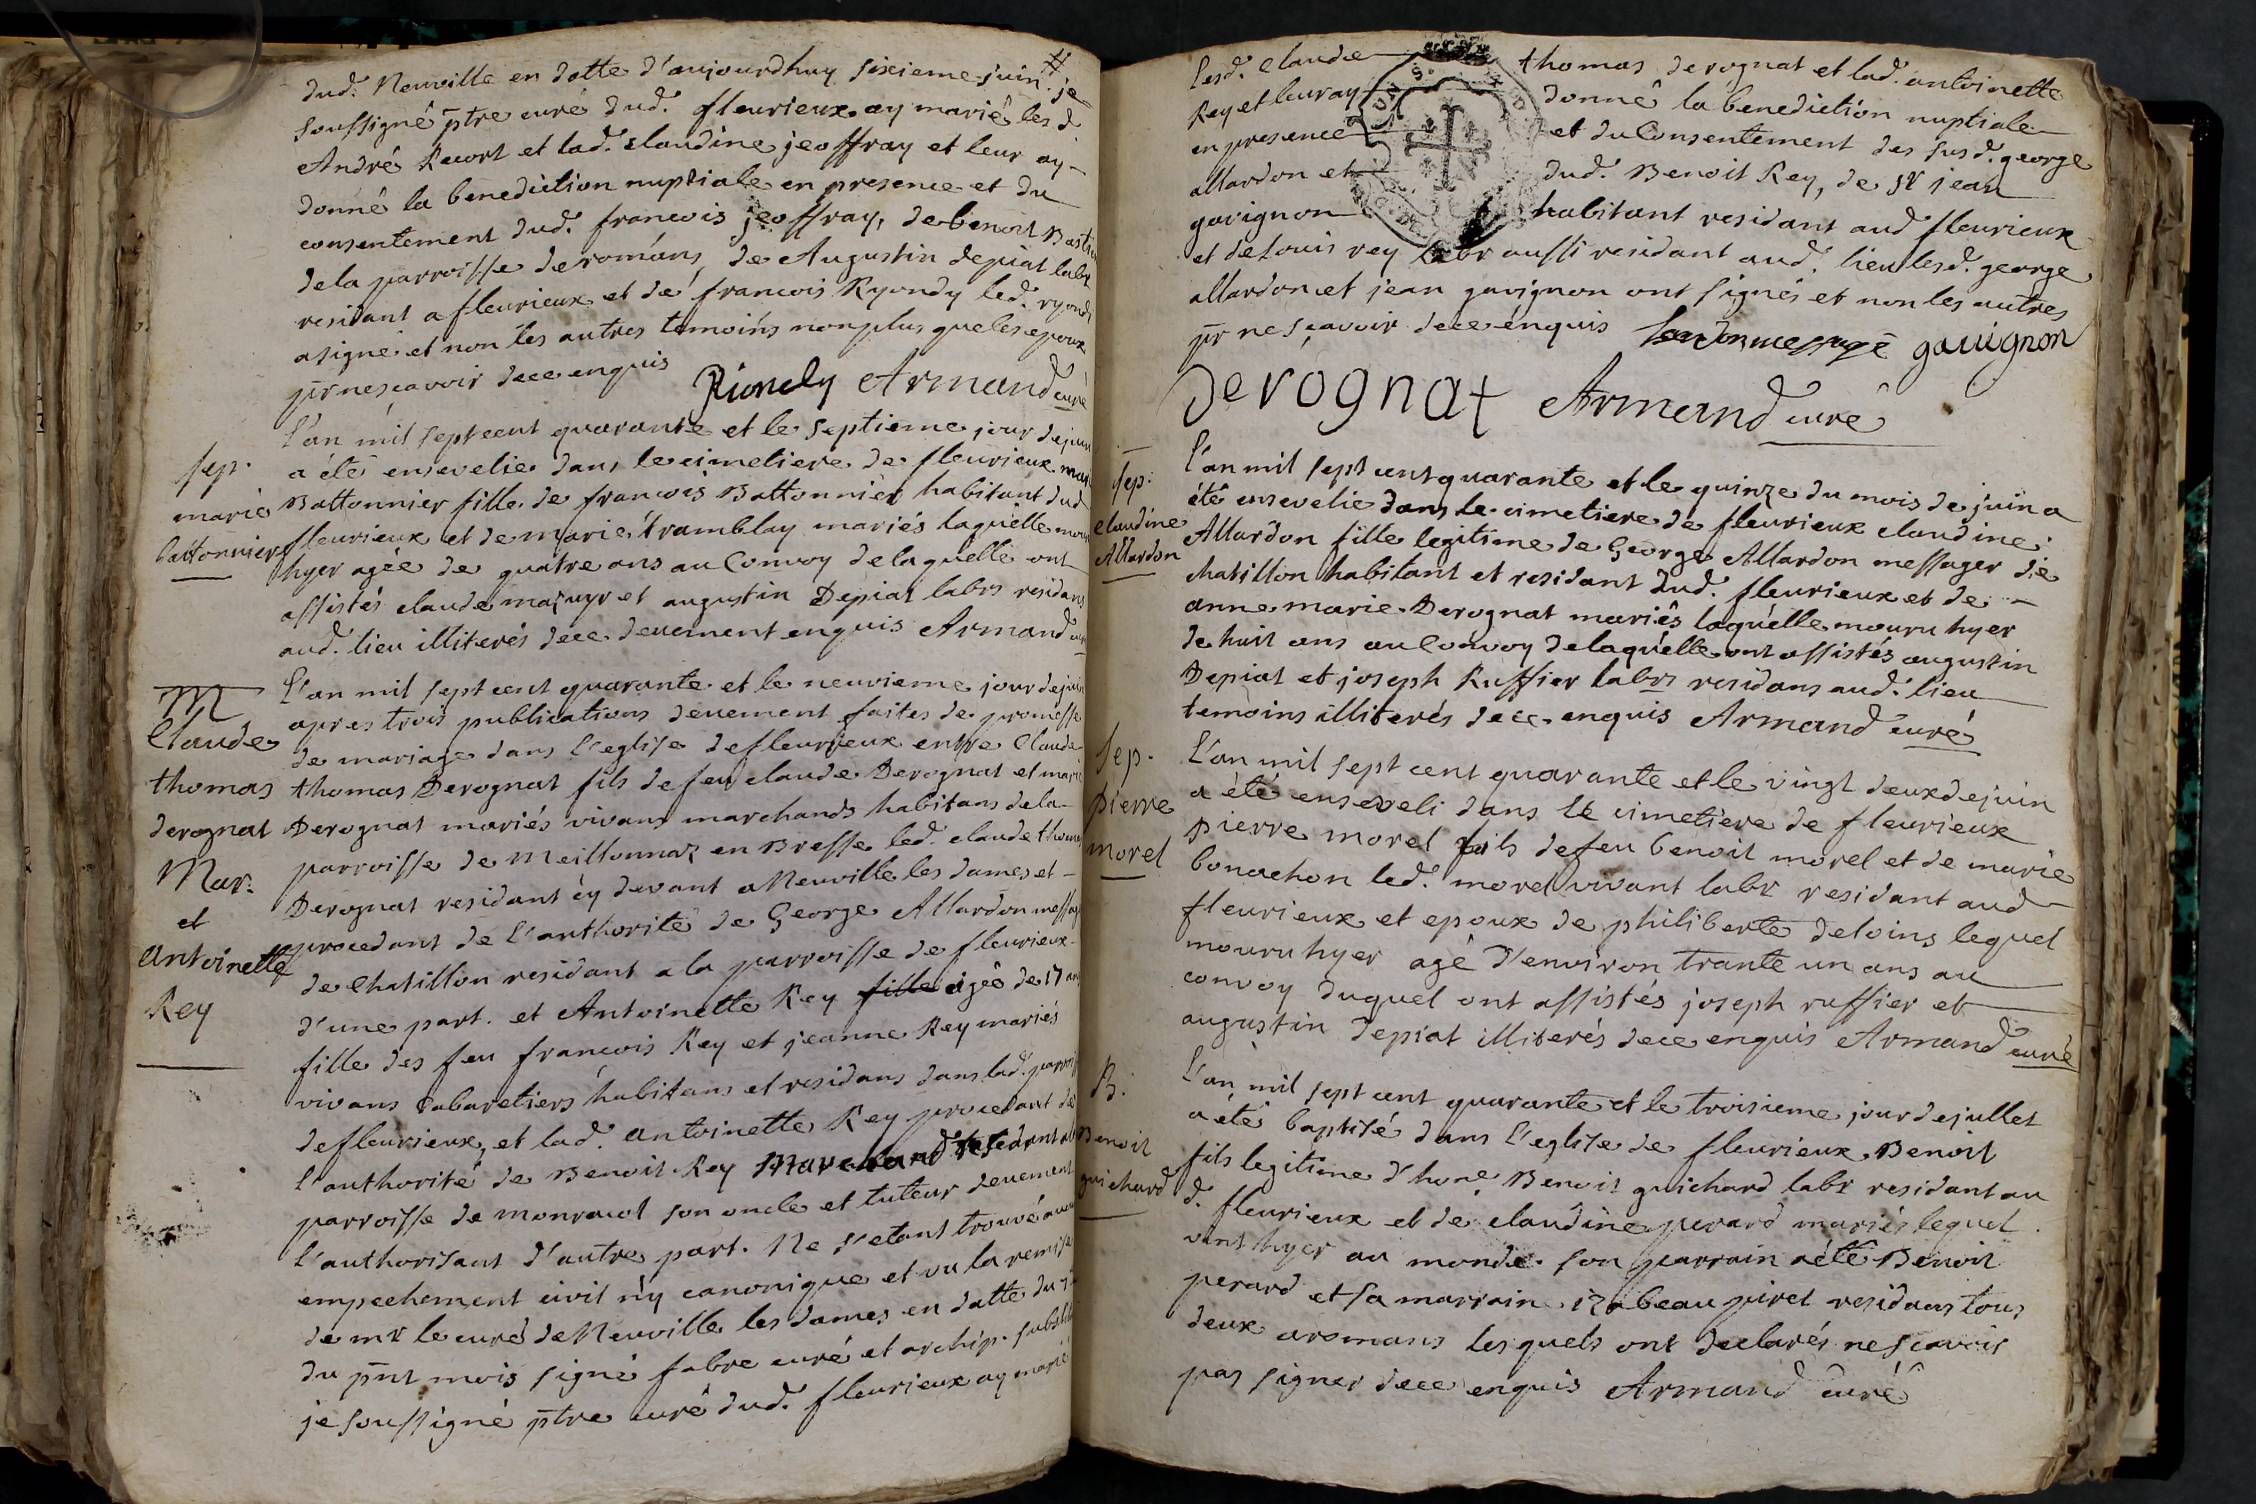 dud. Neuville en datte d'aujourdhuy sixieme juin # je
soussigné ptre curé dud. fleurieux ay marié les d
André Recort et lad. claudine jeoffray et leur ay
donné la benediction nuptiale en presence et du
consentement dud. francois jeoffray, de benoit
de la parroisse de romans, de Augustin depiat labr
residant a fleurieux et de francois Ryondy led. ryondy
a signé et non les autres temoins non plus que les epoux
pr ne scavoir de ce enquis Riondy Armand curé
sep.
marie
battonnier
L'an mil sept cent quarante et le septieme jour de juin
a été ensevelie dans le cimetiere de fleurieux marie
Battonnier fille de francois Battonnier habitant dud
fleurieux et de marie tramblay mariés laquelle mouru
hyer agée de quatre ans au Convoy de laquelle ont
assistés claude mazuyr et augustin Depiat labrs residans
aud. lieu illiterés de ce deuement enquis Armand curé
M
Claude
thomas
derognat
Mar.
et
antoinette
Rey
L'an mil sept cent quarante et le neuvieme jour de juin
apres trois publications deuement faites de promesse
de mariage dans l'eglise de fleurieux entre Claude
thomas Derognat fils de feu claude Derognat et marie
Derognat mariés vivans marchands habitans de la
parroisse de Meillonnaz en Bresse led. claude thomas
Derognat residant cy devant a Neuville les dames et
procedant de l'authorité de George Allardon messager
de Chatillon residant a la parroisse de fleurieux
d'une part. et Antoinette Rey fille agée de 17 ans
fille des feu francois Rey et jeanne Rey mariés
vivans Cabaretiers habitans et residans dans lad. parroisse
de fleurieux, et lad. antoinette Rey procedant de
l'authorité de Benoit Rey Marchand residant a la
parroisse de monracol son oncle et tuteur deuement
l'authorisant d'autre part. Ne s'etant trouvé aucun
empechement civil n'y canonique et vu la remise
de mr le curé de Neuville les dames en datte du
du pnt mois signé fabre curé et archip. substitut
je soussigné ptre curé dud. fleurieux ay marié
lesd. Claude thomas derognat et lad. antoinette
Rey et leur ay donné la benediction nuptiale
en presence et du Consentement des susd. george
allardon et dud. Benoit Rey, de Sr jean
gavignon habitant residant aud fleurieux
et de Louis rey labr aussi residant aud. lieu lesd. george
allardon et jean gavignon ont signés et non les autres
pr ne scavoir de ce enquis gauignon
Derognat Armand curé
sep.
claudine
Allardon
L'an mil sept cent quarante et le quinze du mois de juin a
été ensevelie dans le cimetiere de fleurieux claudine
Allardon fille legitime de George Allardon messager de
chatillon habitant et residant dud. fleurieux et de
anne marie Derognat mariés laquelle mouru hyer
de huit ans au Convoy de laquelle ont assistés augustin
Depiat et joseph Ruffier labrs residans aud. lieu
temoins illiterés de ce enquis Armand curé
sep.
pierre
morel
L'an mil sept cent quarante et le vingt deux de juin
a été enseveli dans le cimetiere de fleurieux
pierre morel fils de feu benoit morel et de marie
bonachon led. morel vivant labr residant aud
fleurieux et epoux de philiberte deloins lequel
mouru hyer agé d'environ trante un ans au
convoy duquel ont assistés joseph ruffier et
augustin depiat illiterés de ce enquis Armand curé
B.
Benoit
guichard
L'an mil sept cent quarante et le troisieme jour de jullet
a été baptisé dans l'eglise de fleurieux Benoit
fils legitime d'hone Benoit guichard labr residant au
d. fleurieux et de claudine perard mariés lequel
vint hyer au monde. son parrain a été Benoit
perard et sa marraine izabeau piret residans tous
deux a romans lesquels ont declarés ne scavoir
pas signer de ce enquis Armand curé